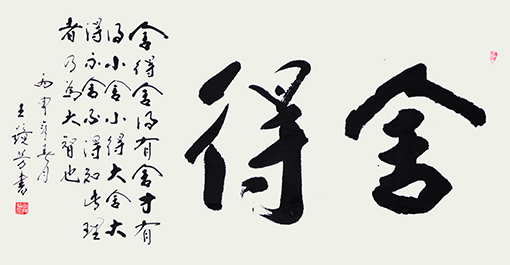 舍得
舍得舍得有舍才有
得小舍小得大舍大
得不舍不得知此理
者乃為大智也
丙申年春月
王 芳書